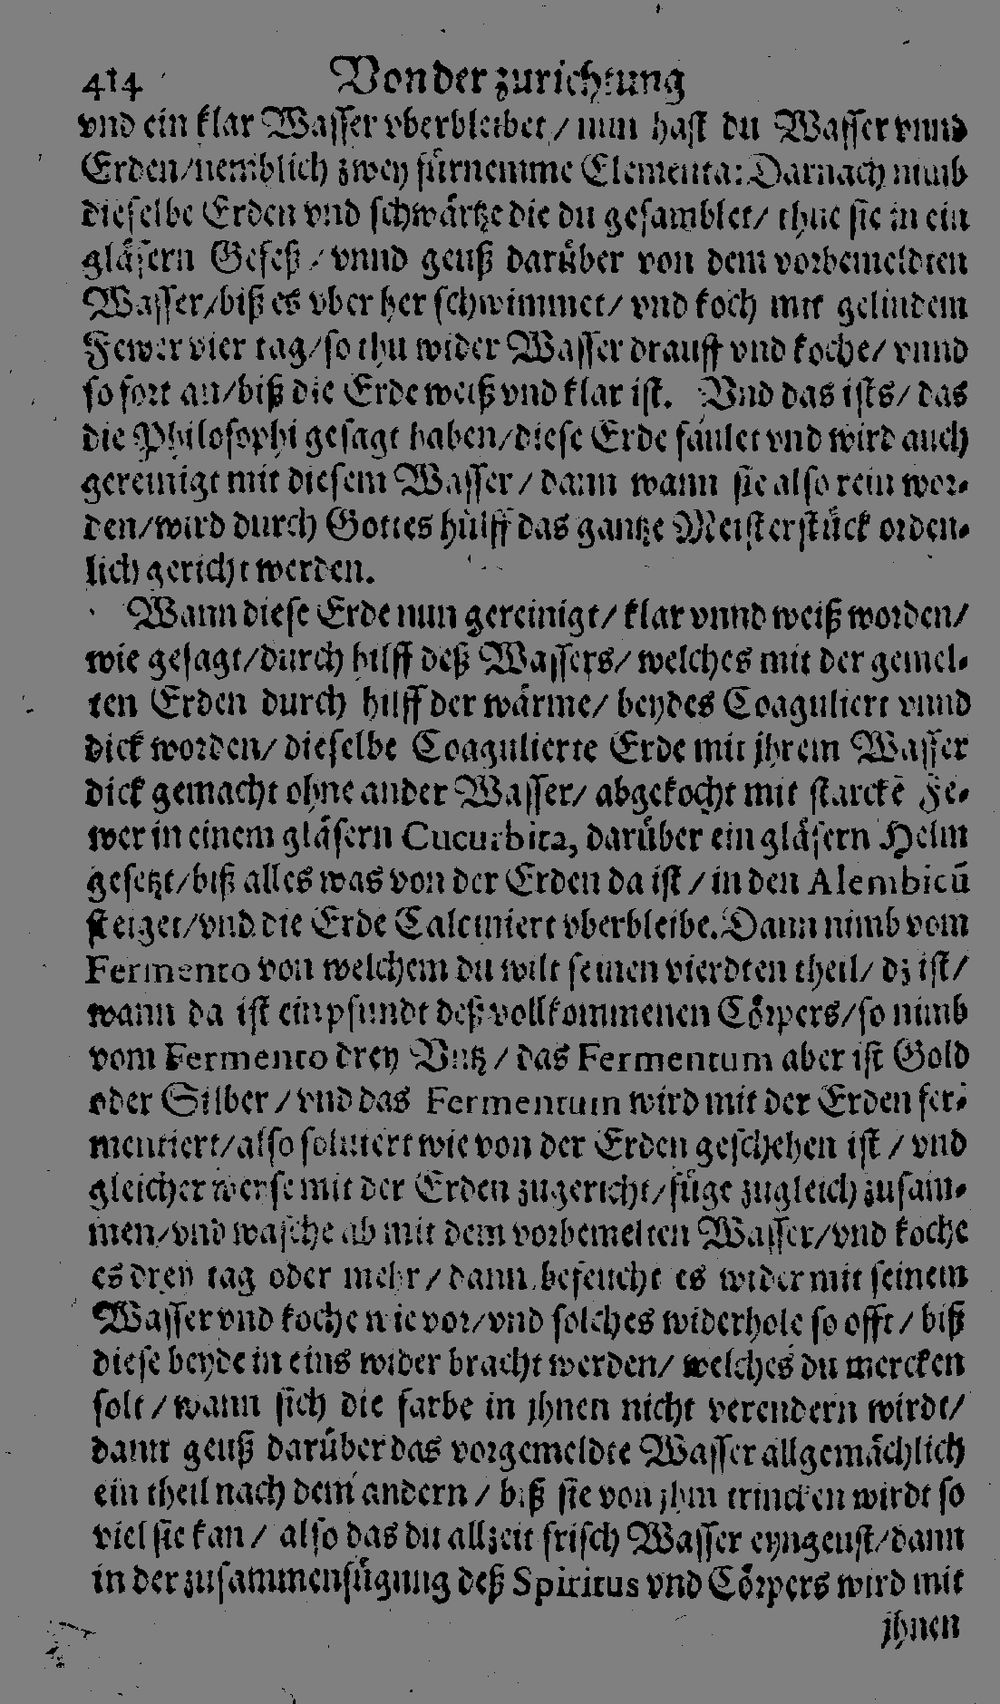 414 Von der zurichtung
vnd ein klar Wasser vberbleibet / nun hast du Wasser vnnd
Erden/nemblich zwey fürnemme Elementa: Darnach nimb
dieselbe Erden vnd schwärtze die du gesamblet/ thue sie in ein
gläsern Gefeß / vnnd geuß darüber von dem vorbemeldten
Wasser/biß es vber her schwimmet/ vnd koch mit gelindem
Fewer vier tag/so thu wider Wasser drauff vnd koche/ vnnd
so fort an/biß die Erde weiß vnd klar ist. Vnd das ists/ das
die Philosophi gesagt haben/diese Erde faulet vnd wird auch
gereinigt mit diesem Wasser / dann wann sie also rein wor-
den/wird durch Gottes hülff das gantze Meisterstück orden-
lich gericht werden.
Wann diese Erde nun gereinigt/ klar vnnd weiß worden/
wie gesagt/durch hilff deß Wassers/ welches mit der gemel-
ten Erden durch hilff der wärme/ beydes Coaguliert vnnd
dick worden/ dieselbe Coagulierte Erde mit jhrem Wasser
dick gemacht ohne ander Wasser/ abgekocht mit starckē Fe-
wer in einem gläsern Cucurbita, darüber ein gläsern Helm
gesetzt/biß alles was von der Erden da ist / in den Alembicū
steiget/vnd die Erde Calciniert vberbleibe. Dann nimb vom
Fermento von welchem du wilt seinen vierdten theil/ dz ist/
wann da ist ein pfundt deß vollkommenen Cörpers/so nimb
vom Fermento drey Vntz / das Fermentum aber ist Gold
oder Silber / vnd das Fermentum wird mit der Erden fer-
mentiert/also soluiert wie von der Erden geschehen ist / vnd
gleicher weyse mit der Erden zugericht/füge zugleich zusam-
men/vnd wasche ab mit dem vorbemelten Wasser/vnd koche
es drey tag oder mehr / dann befeucht es wider mit seinem
Wasser vnd koche wie vor/vnd solches widerhole so offt / biß
diese beyde in eins wider bracht werden/ welches du mercken
solt / wann sich die farbe in jhnen nicht verendern wirdt/
dann geuß darüber das vorgemeldte Wasser allgemächlich
ein theil nach dem andern / biß sie von jhm trincken wirdt so
viel sie kan / also das du allzeit frisch Wasser eyngeust/dann
in der zusammenfügung deß Spiritus vnd Cörpers wird mit
jhnen